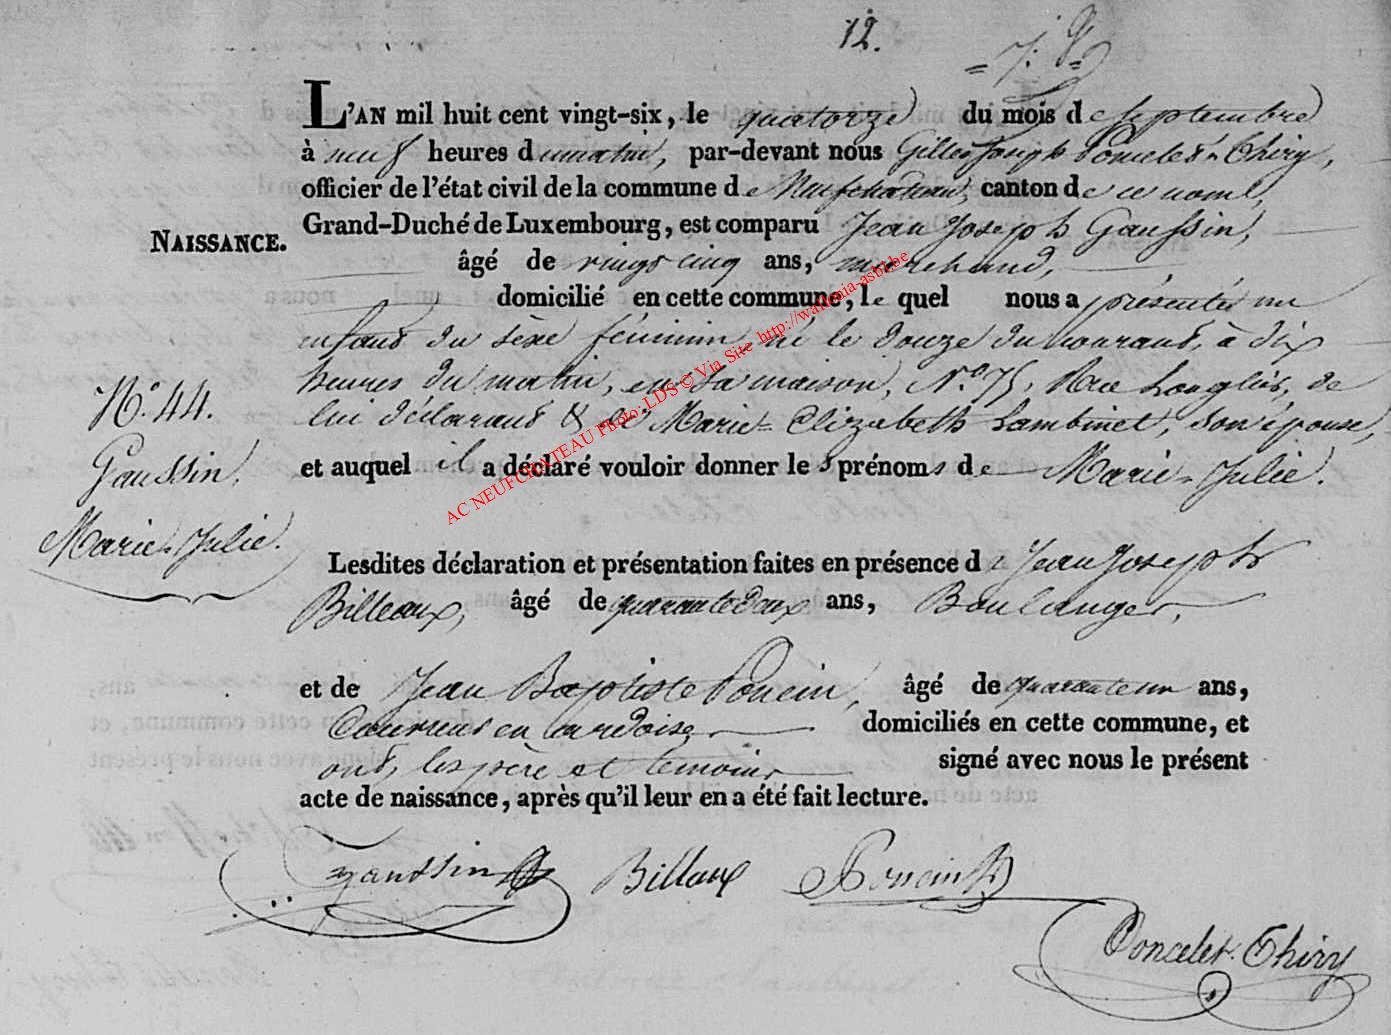 12.
L'AN mil huit cent vingt-six, le quatorze du mois de Septembre
à neuf heures du matin, par-devant nous Gilles Joseph Poncelet-Thiry,
officier de l'état civil de la commune de Neufchateau, canton de ce nom,
NAISSANCE. Grand-Duché de Luxembourg, est comparu Jean Joseph Gaussin,
âgé de vingt cinq ans, marchand,
domicilié en cette commune, lequel nous a présenté un
enfant du sèxe féminin, né le douze du courant, à dix
heures du matin, en sa maison, N.° 75, Rue Longlier, de
lui déclarant & de Marie-Elizabeth Lambinet, son épouse,
et auquel il a déclaré vouloir donner les prénoms de Marie-Julie.
N.° 44.
Gaussin,
Marie-Julie.
Lesdites déclaration et présentation faites en présence de Jean Joseph
Billeaux, âgé de quarante deux ans, Boulanger,
et de Jean Baptiste Poncin, âgé de quarante un ans,
Couvreur en ardoise domiciliés en cette commune, et
ont, les père et temoins signé avec nous le présent
acte de naissance, après qu'il leur en a été fait lecture.
Gaussin Billaux Poncin
Poncelet-Thiry
AC NEUFCHATEAU Photo: LDS © Via Site http://wallonia-asbl.be